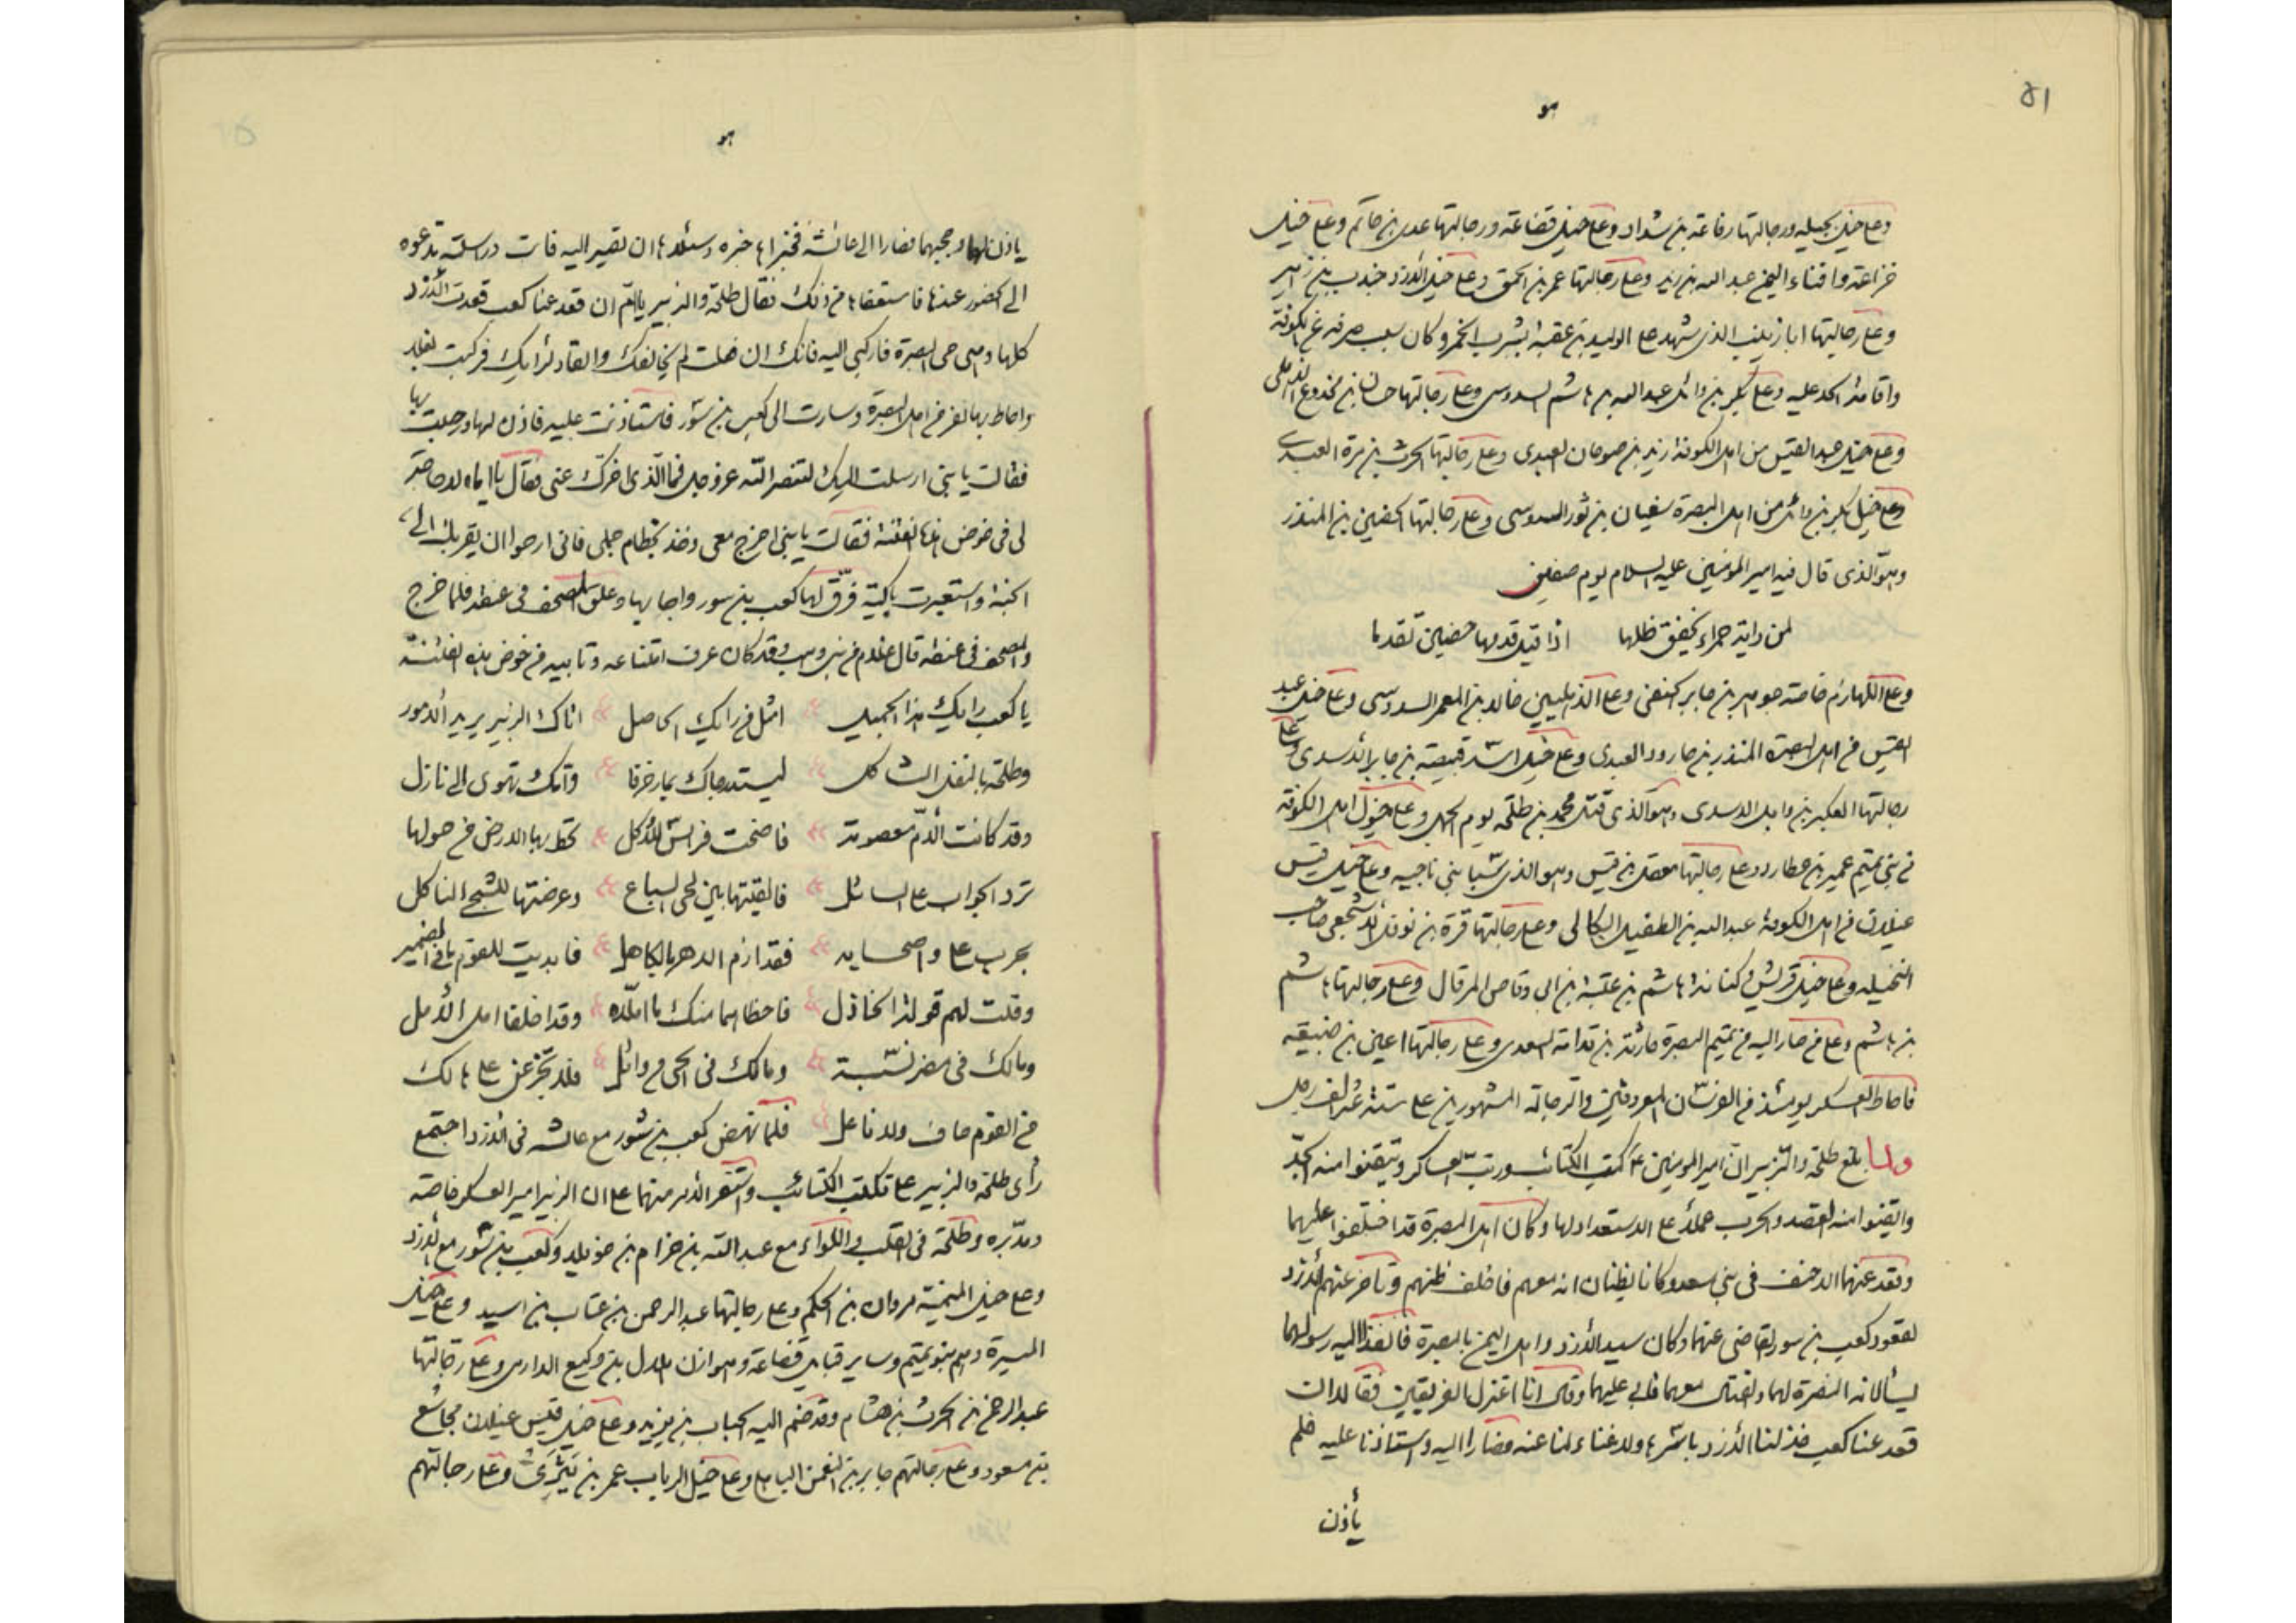 ٥١
هو
وعلى خيل بجيله ورجالتها رفاعة بن شداد وعلى خيل قضاعة ورجالتها عدى بن حاتم وعلى خيل
خزاعة وافناء اليمن عبد الله بن زيد وعلى رجالتها عمر بن الحمق وعلى خيل الأزد جندب بن زهير
وعلى رجالتها ابا زينب الذى شهد على الوليد بن عقبة بشرب الخمر وكان سبب صرفه عن الكوفة
واقامة الحد عليه وعلى بكر بن وائل عبد الله بن هاشم السدوسى وعلى رجالتها حسان بن مخدوع الذهلى
وعلى خيل عبد القيس من اهل الكوفة زيد بن صوحان العبدى وعلى رجالتها الحرث بن مرة العبدى
وعلى خيل بكر بن وائل من اهل البصرة سفيان بن ثور السدوسى وعلى رجالتها الحضين بن المنذر
وهو الذى قال فيه امير المؤمنين عليه السلام يوم صفين
لمن راية حمراء يخفق ظلها اذا قيل قدمها حضين تقدما
وعلى اللهازم خاصة حريث بن جابر الحنفى وعلى الذهليين خالد بن المعمر السدوسى وعلى خيل عبد
القيس من اهل البصرة المنذر بن جارود العبدى وعلى خيل اسد قبيصة بن جابر الأسدى وعلى
رجالتها العكبر بن وابل الاسدى وهو الذى قتل محمد بن طلحه يوم الجمل وعلى خيول اهل الكوفة
من بنى تميم عمير بن عطارد وعلى رجالتها معقل بن قيس وهو الذى سبا بنى ناجيه وعلى خيل قيس
عيلان من اهل الكوفة عبد الله بن الطفيل البكالى وعلى رجالتها قرة بن نوفل الأشجعى صاحب
النخيله وعلى خيل قريش وكنانة هاشم بن عتبة بن ابى وقاص المرقال وعلى رجالتها هاشم
بن هاشم وعلى من صار اليه من تميم البصرة جارية بن قدامة السعدى وعلى رجالتها اعين بن ضبيعه
فاحاط العسكر يومئذ من الفرسان المعروفين والرجالة المشهورين على ستة عشر الف رجل
ولما بلغ طلحة والزبير ان امير المؤمنين ع كتب الكتائب ورتب العساكر وتيقنوا منه الجد
وايقنوا منه القصد والحرب عملا على الاستعداد لها وكان اهل البصرة قد اختلفوا عليهما
وقعد عنهما الاحنف فى بنى سعد وكانا يظنان انه معهم فاخلف ظنهم وتاخر عنهم الأزد
لقعود كعب بن سور القاضى عنهما وكان سيد الأزد واهل اليمن بالبصرة فانفذا اليه رسولهما
يسألانه النصرة لهما والقتال معهما فابى عليهما وقال انا اعتزل الفريقين فقالا ان
قعد عنا كعب خذلنا الأزد باسرها ولا غناء لنا عنه فصارا اليه واستاذنا عليه فلم
يأذن
هو
ياذن لهما وحجبهما فصارا الى عائشة فخبراها خبره وسئلاها ان تصير اليه فابت وراسلته تدعوه
الى الحضور عندها فاستعفاها من ذلك فقال طلحة والزبير يا ام ان قعد عنا كعب قعدت الأزد
كلها وهى حى البصرة فاركبى اليه فانك ان فعلت لم يخالفك وانقاد لرأيك فركبت بغلا
واحاط بها نفر من اهل البصرة وسارت الى كعب بن سور فاستاذنت عليه فاذن لها ورحب بها
فقالت يا بنى ارسلت اليك لتنصر الله عز وجل فما الذى اخرك عنى فقال يا اماه لا حاجة
لى فى خوض هذه الفتنة فقالت يا بنى اخرج معى وخذ بخطام جملى فانى ارجوا ان يقربك الى
الجنة واستعبرت باكية فرق لها كعب بن سور واجابها وعلق المصحف فى عنقه فلما خرج
والمصحف فى عنقه قال غلام من بنى وهب وقد كان عرف امتناعه وتابيه من خوض هذه الفتنة
يا كعب رايك هذا الجميل امثل من رايك الحاصل اتاك الزبير يريد الأمور
وطلحة بالنقل الثاكل ليستدرجاك بما زخرفا وامك تهوى الى نازل
وقد كانت الأم معصومة فاضحت فرائس للأكل تخط بها الارض من حولها
ترد الجواب على السائل فالقيتها بين لحى السباع وعرضتها للشجى الثاكل
بحرب على واصحابه فقد ازم الدهر بالكاهل فابديت للقوم ما فى الضمير
وقلت لهم قولة الخاذل فاحظاهما منك ما املاه وقد اخلفا امل الأمل
ومالك فى مضر نسبة ومالك فى الحى من وائل فلا تجزعن على هالك
من القوم حاف ولا ناعل فلما نهض كعب بن سور مع عائشه فى الأزد اجتمع
رأى طلحة والزبير على تكتيب الكتائب واستقر الأمر منهما على ان الزبير امير العسكر خاصة
ومدبره وطلحة فى القلب واللواء مع عبد الله بن حزام بن خويلد وكعب بن سور مع الأزد
وعلى خيل الميمنة مروان بن الحكم وعلى رجالتها عبد الرحمن بن عتاب بن اسيد وعلى خيل
الميسرة وهم بنو تميم وساير قبايل قضاعة وهوازن هلال بن وكيع الدارمى وعلى رجالتها
عبد الرحمن بن الحرث بن هشام وقد ضم اليه الحباب بن يزيد وعلى خيل قيس عيلان مجاشع
بن مسعود وعلى رجالتهم جابر بن النعمن الباهلى وعلى خيل الرباب عمر بن يثربى وعلى رجالتهم